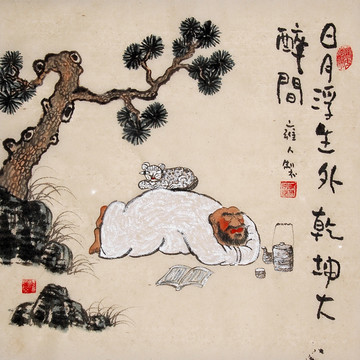 日月浮生外乾坤大
醉間